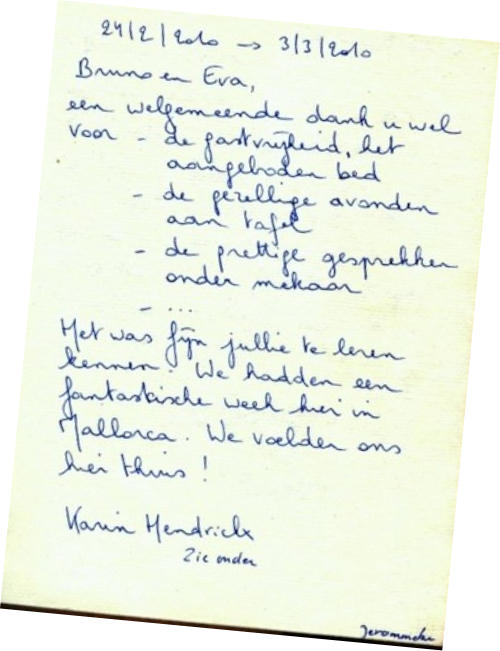 24/2/2010 → 3/3/2010
Bruno en Eva,
een welgemeende dank u wel
voor - de gastvrijheid, het
aangeboden bed
- de gezellige avonden
aan tafel
- de prettige gesprekken
onder mekaar
- ...
Het was fijn jullie te leren
kennen. We hadden een
fantastische week hier in
Mallorca. We voelden ons
hier thuis!
Karin Hendrickx
Zie onder